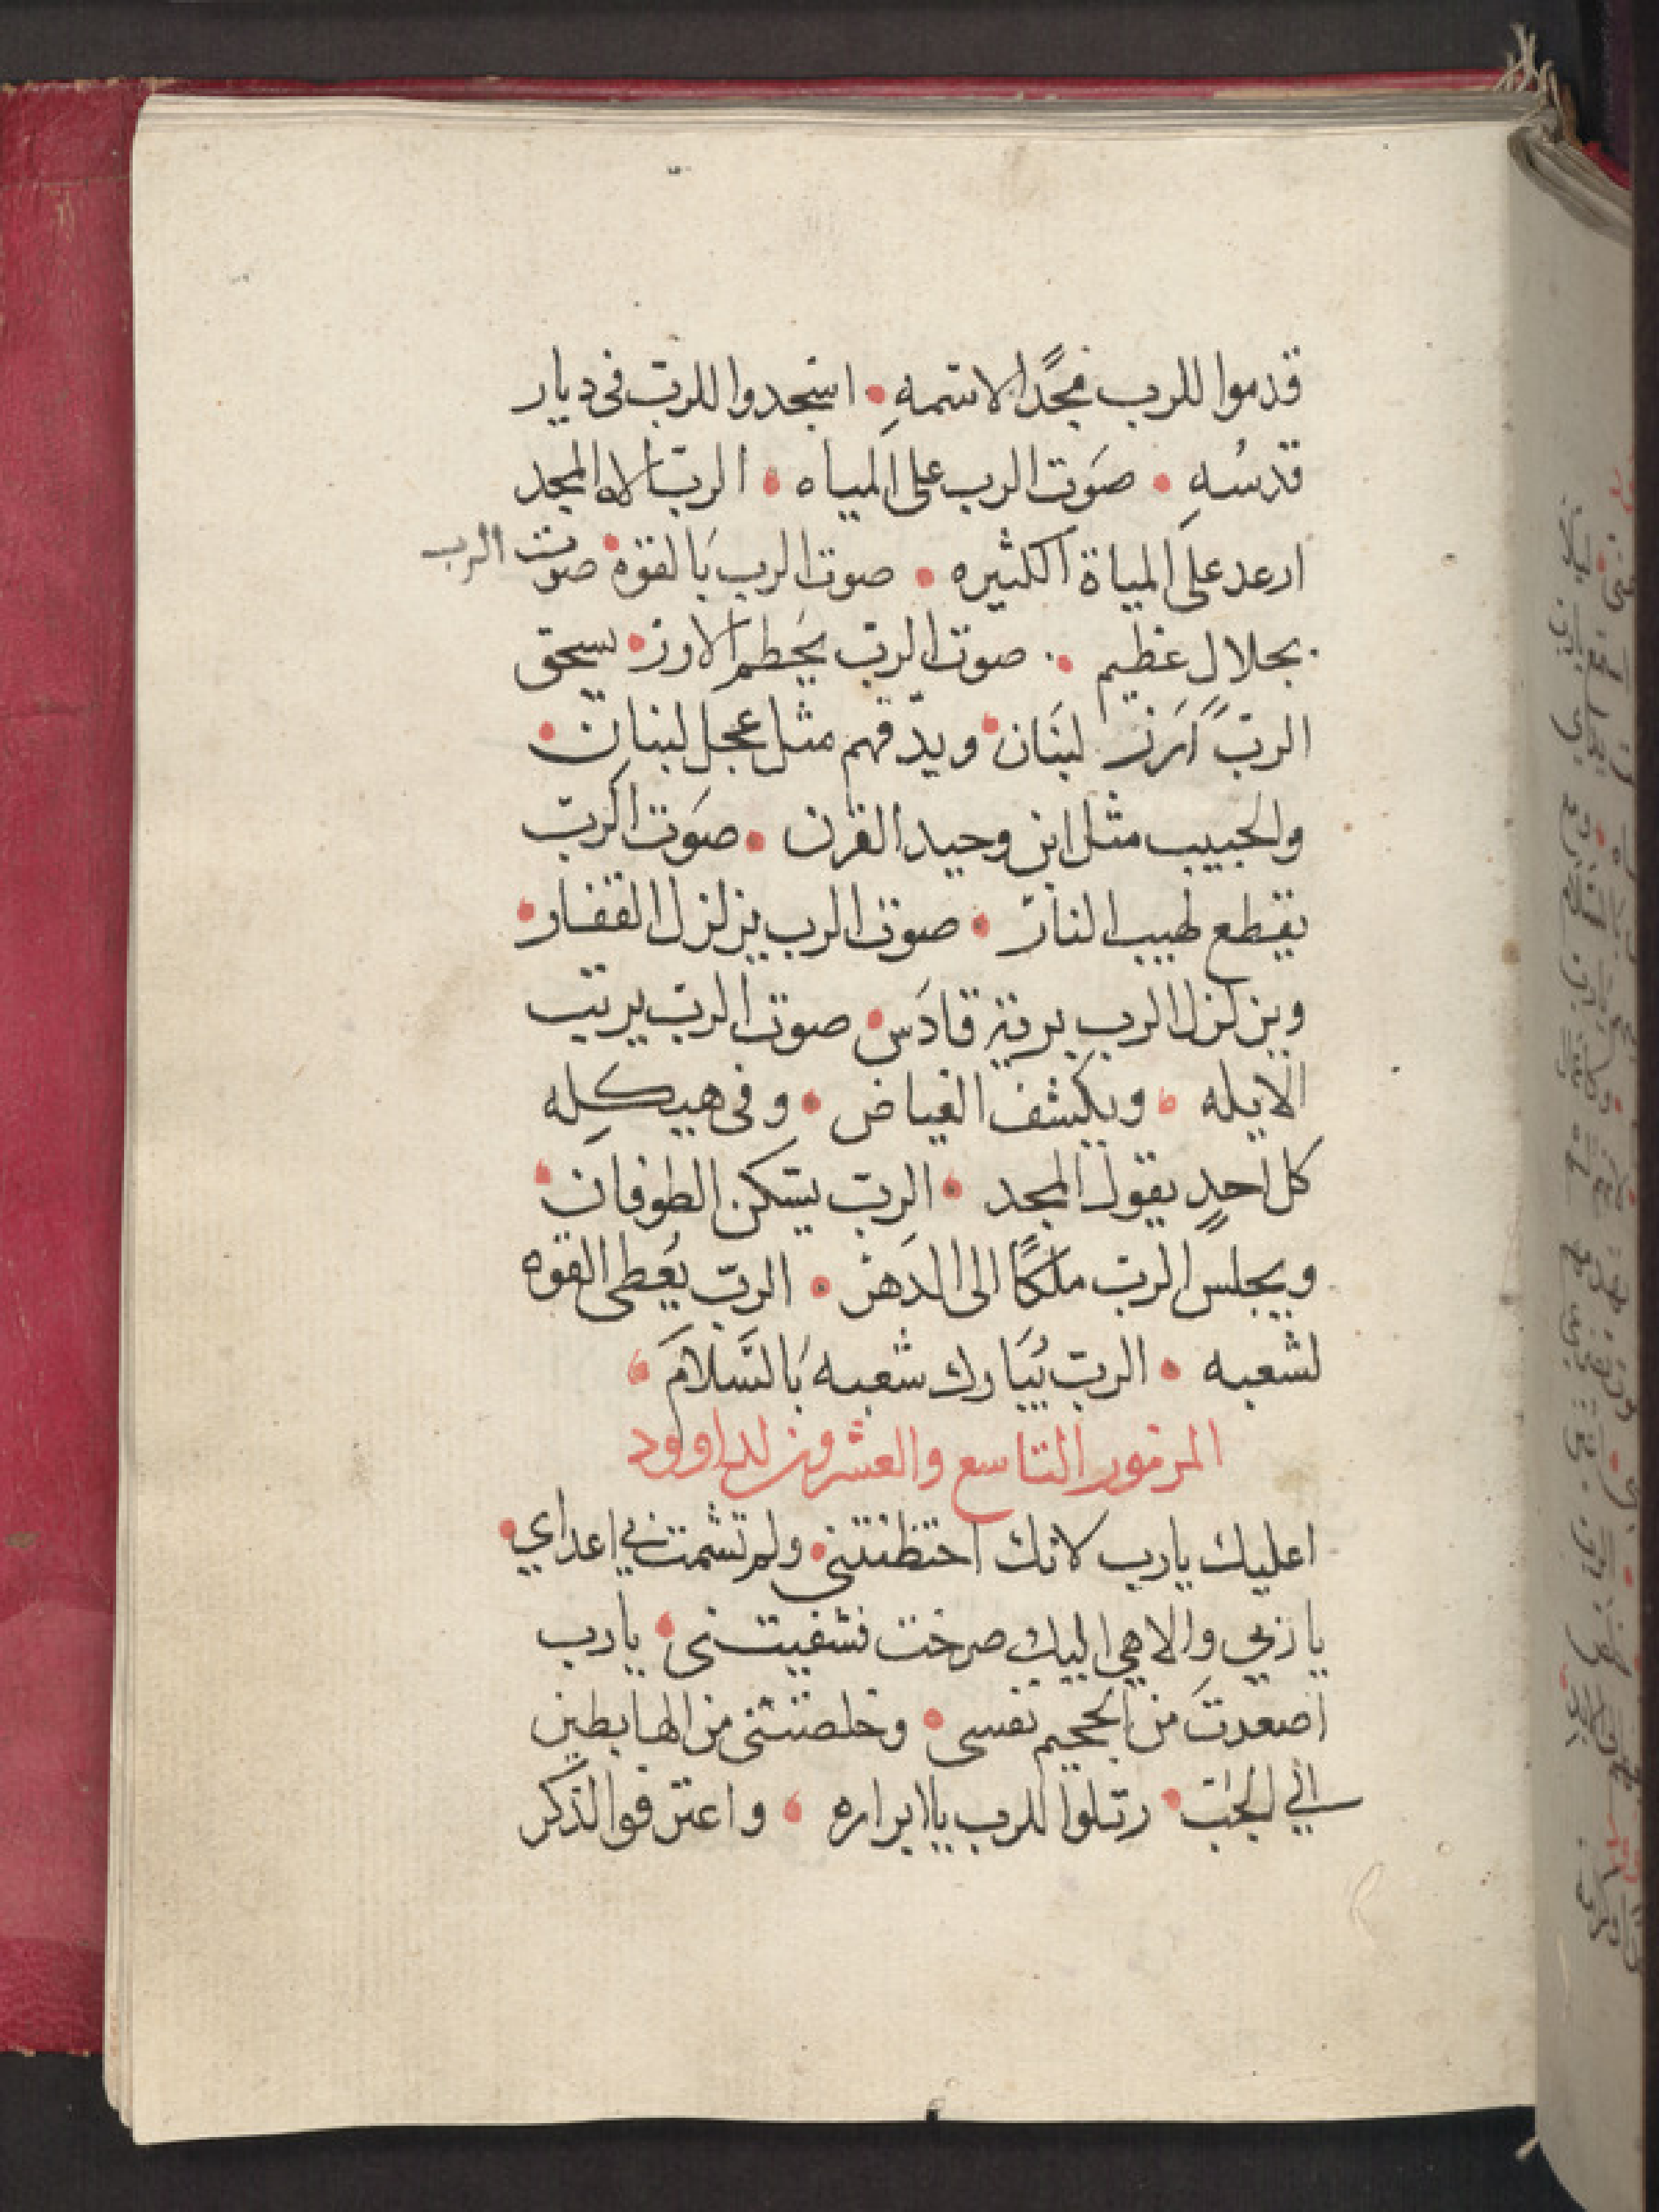 قدموا للرب مجدًا لاسمهِ • اسجدوا للرب في ديار
قدسُهِ • صَوت الرب على المياه • الربّ الاه المجد
ارعد على المياة الكثيره • صوت الرب بَالقوّه • صوت الرب
بجلالٍ عظيم • صوت الربّ يحَطم الارز • يسحق
الربّ اَرَز لبنَان • ويدّقهم مثل عجل لبنان •
والحبيب مثل ابن وحيد القرن • صَوت الربّ
يقطع لهيب النار • صوت الرب يزلزل القفار •
ويزلزل الرب بريّة قادَس • صوت الربّ يرتب
الايله • ويكشف الغياض • وفي هيكلِه
كل احدٍ يقول المجد • الربّ يسكن الطوفان •
ويجلس الربّ ملكًا الى الدَهر • الربّ يعَطى القوه
لشعبه • الربّ يُبَارك شعبه بَالسَلامَ •
المزمور التاسع والعشرون لداوود
اعليك يارب لانك احتظنتني • ولم تشمت بي اعداي •
يا ربي والاهي اليك صرخت فشفيتني • يا رب
اصعدتَ من الجحيم نفسى • وخلصتنى من الهابطين
الي الجب • رتلوا للرب يا ابراره • واعترفوا لذكر